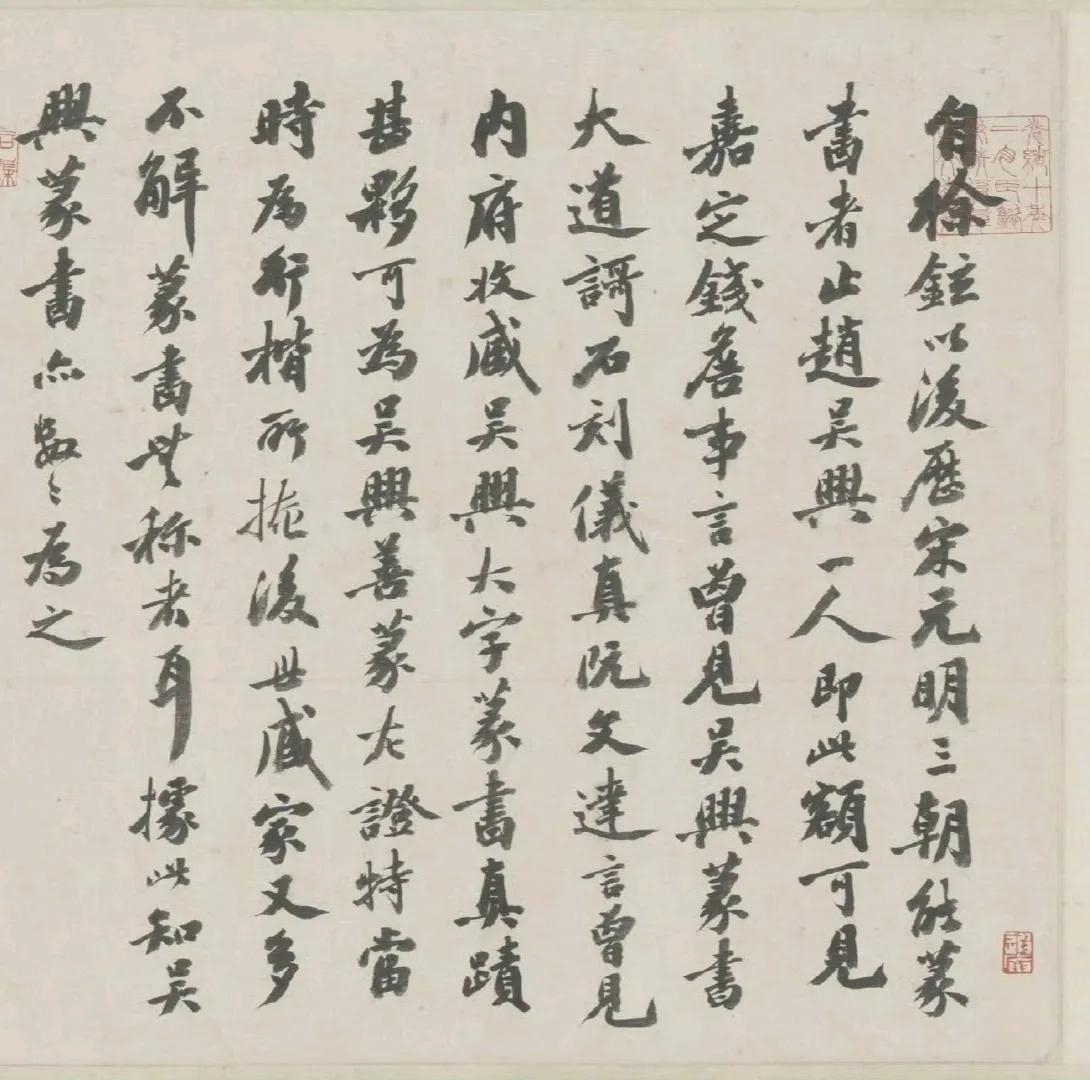 自徐鉉以後歷宋元明三朝能篆
書者止趙吳興一人即此額可見
嘉定錢詹事言曾見吳興篆書
大道謌石刻儀真阮文達言曾見
內府收藏吳興大字篆書真蹟
甚夥可為吳興善篆左證特當
時為行楷所掩後世感家又多
不解篆書無称者耳據此知吳
興篆書亦數〻為之